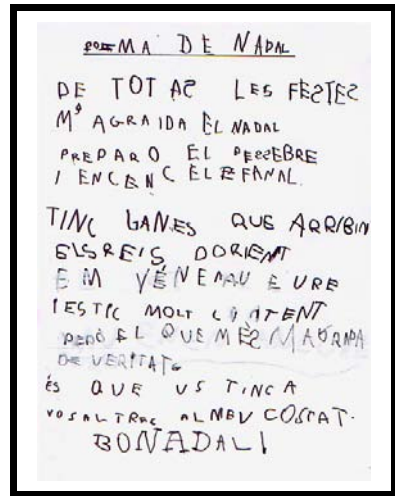 POEMA DE NADAL
DE TOTAS LES FESTES
M' AGRAIDA EL NADAL
PREPARO EL PESSEBRE
I ENCENC EL EFANAL.
TINC GANES QUE ARRIBIN
ELS REIS DORIENT
EM VÉNEN AU EURE
I ESTIC MOLT CONTENT
PERÒ EL QUE MÉS MAGRADA
DE VERITAT
ÉS QUE US TINC A
VOSALTRAC AL MEU COSTAT.
BON NADAL!